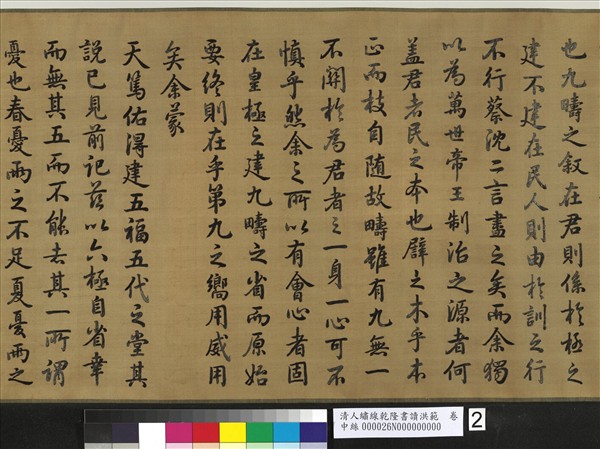 也九疇之叙在君則係於極之
建不建在民人則由於訓之行
不行蔡沈二言盡之矣而余獨
以為萬世帝王制治之源者何
盖君者民之本也譬之木乎本
正而枝自随故疇雖有九無一
不關於為君者之一身一心可不
慎乎然余之所以有會心者固
在皇極之建九疇之省而原始
要終則在乎第九之嚮用威用
矣余蒙
天篤佑得建五福五代之堂其
說已見前記茲以六極自省幸
而無其五而不能去其一所謂
憂也春憂雨之不足夏憂雨之
清人繡線乾隆書讀洪範 卷
中絲 000026N000000000
2